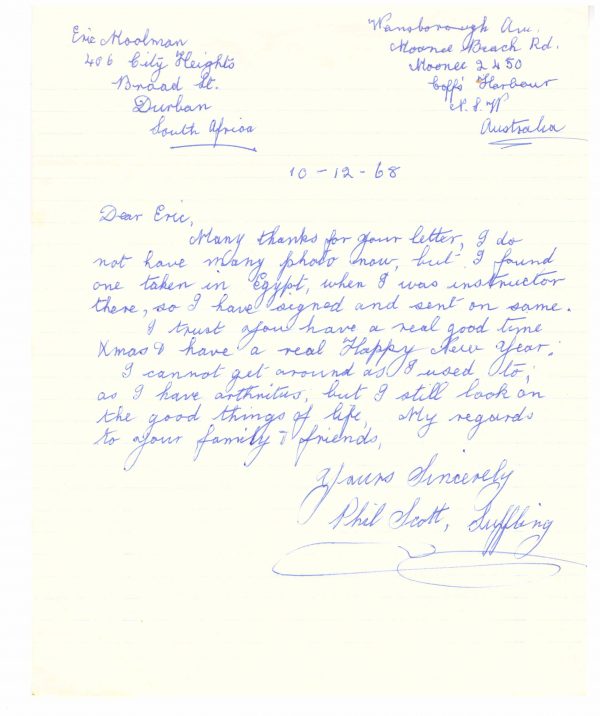 Eric Moolman
406 City Heights
Broad St.
Durban
South Africa
Wansborough Av.
Moonee Beach Rd.
Moonee 2450
Coffs Harbour
N.S.W
Australia
10-12-68
Dear Eric,
Many thanks for your letter, I do
not have many photo now, but I found
one taken in Egypt, when I was instructor
there, so I have signed and sent on same.
I trust you have a real good time
Xmas & have a real Happy New Year.
I cannot get around as I used to,
as I have arthritus, but I still look on
the good things of life, My regards
to your family & friends,
Yours Sincerely
Phil Scott, Suffling